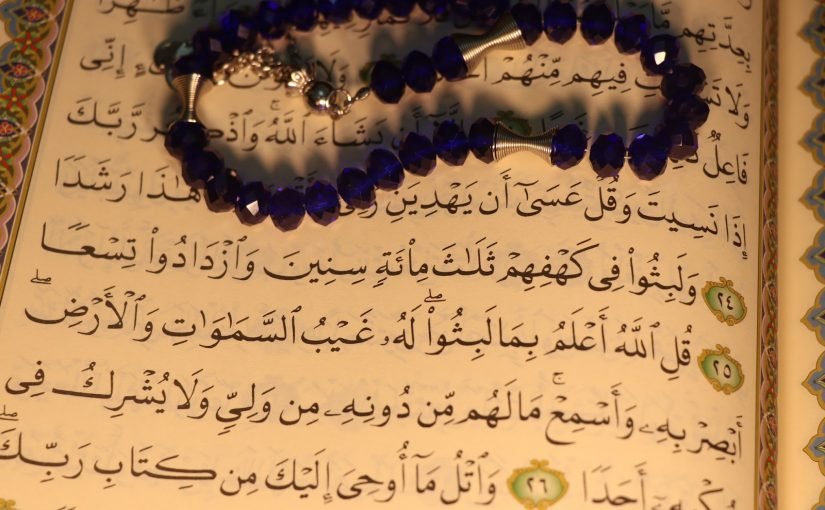 بِعِدَّتِهِم مَّا ظَٰهِرًا
فِيهِم مِّنْهُمْ وَلَا إِنِّى
فَاعِلٌ أَن يَشَآءَ ٱللَّهُ وَٱذْكُر رَّبَّكَ
إِذَا نَسِيتَ وَقُلْ عَسَىٰٓ أَن يَهْدِيَنِ رَبِّى هَٰذَا رَشَدًا
٢٤ وَلَبِثُوا۟ فِى كَهْفِهِمْ ثَلَٰثَ مِا۟ئَةٍ سِنِينَ وَٱزْدَادُوا۟ تِسْعًا
٢٥ قُلِ ٱللَّهُ أَعْلَمُ بِمَا لَبِثُوا۟ ۖ لَهُۥ غَيْبُ ٱلسَّمَٰوَٰتِ وَٱلْأَرْضِ ۖ
أَبْصِرْ بِهِۦ وَأَسْمِعْ ۚ مَا لَهُم مِّن دُونِهِۦ مِن وَلِىٍّ وَلَا يُشْرِكُ فِى
حُكْمِهِۦٓ أَحَدًا ٢٦ وَٱتْلُ مَآ أُوحِىَ إِلَيْكَ مِن كِتَابِ رَبِّكَ ۖ